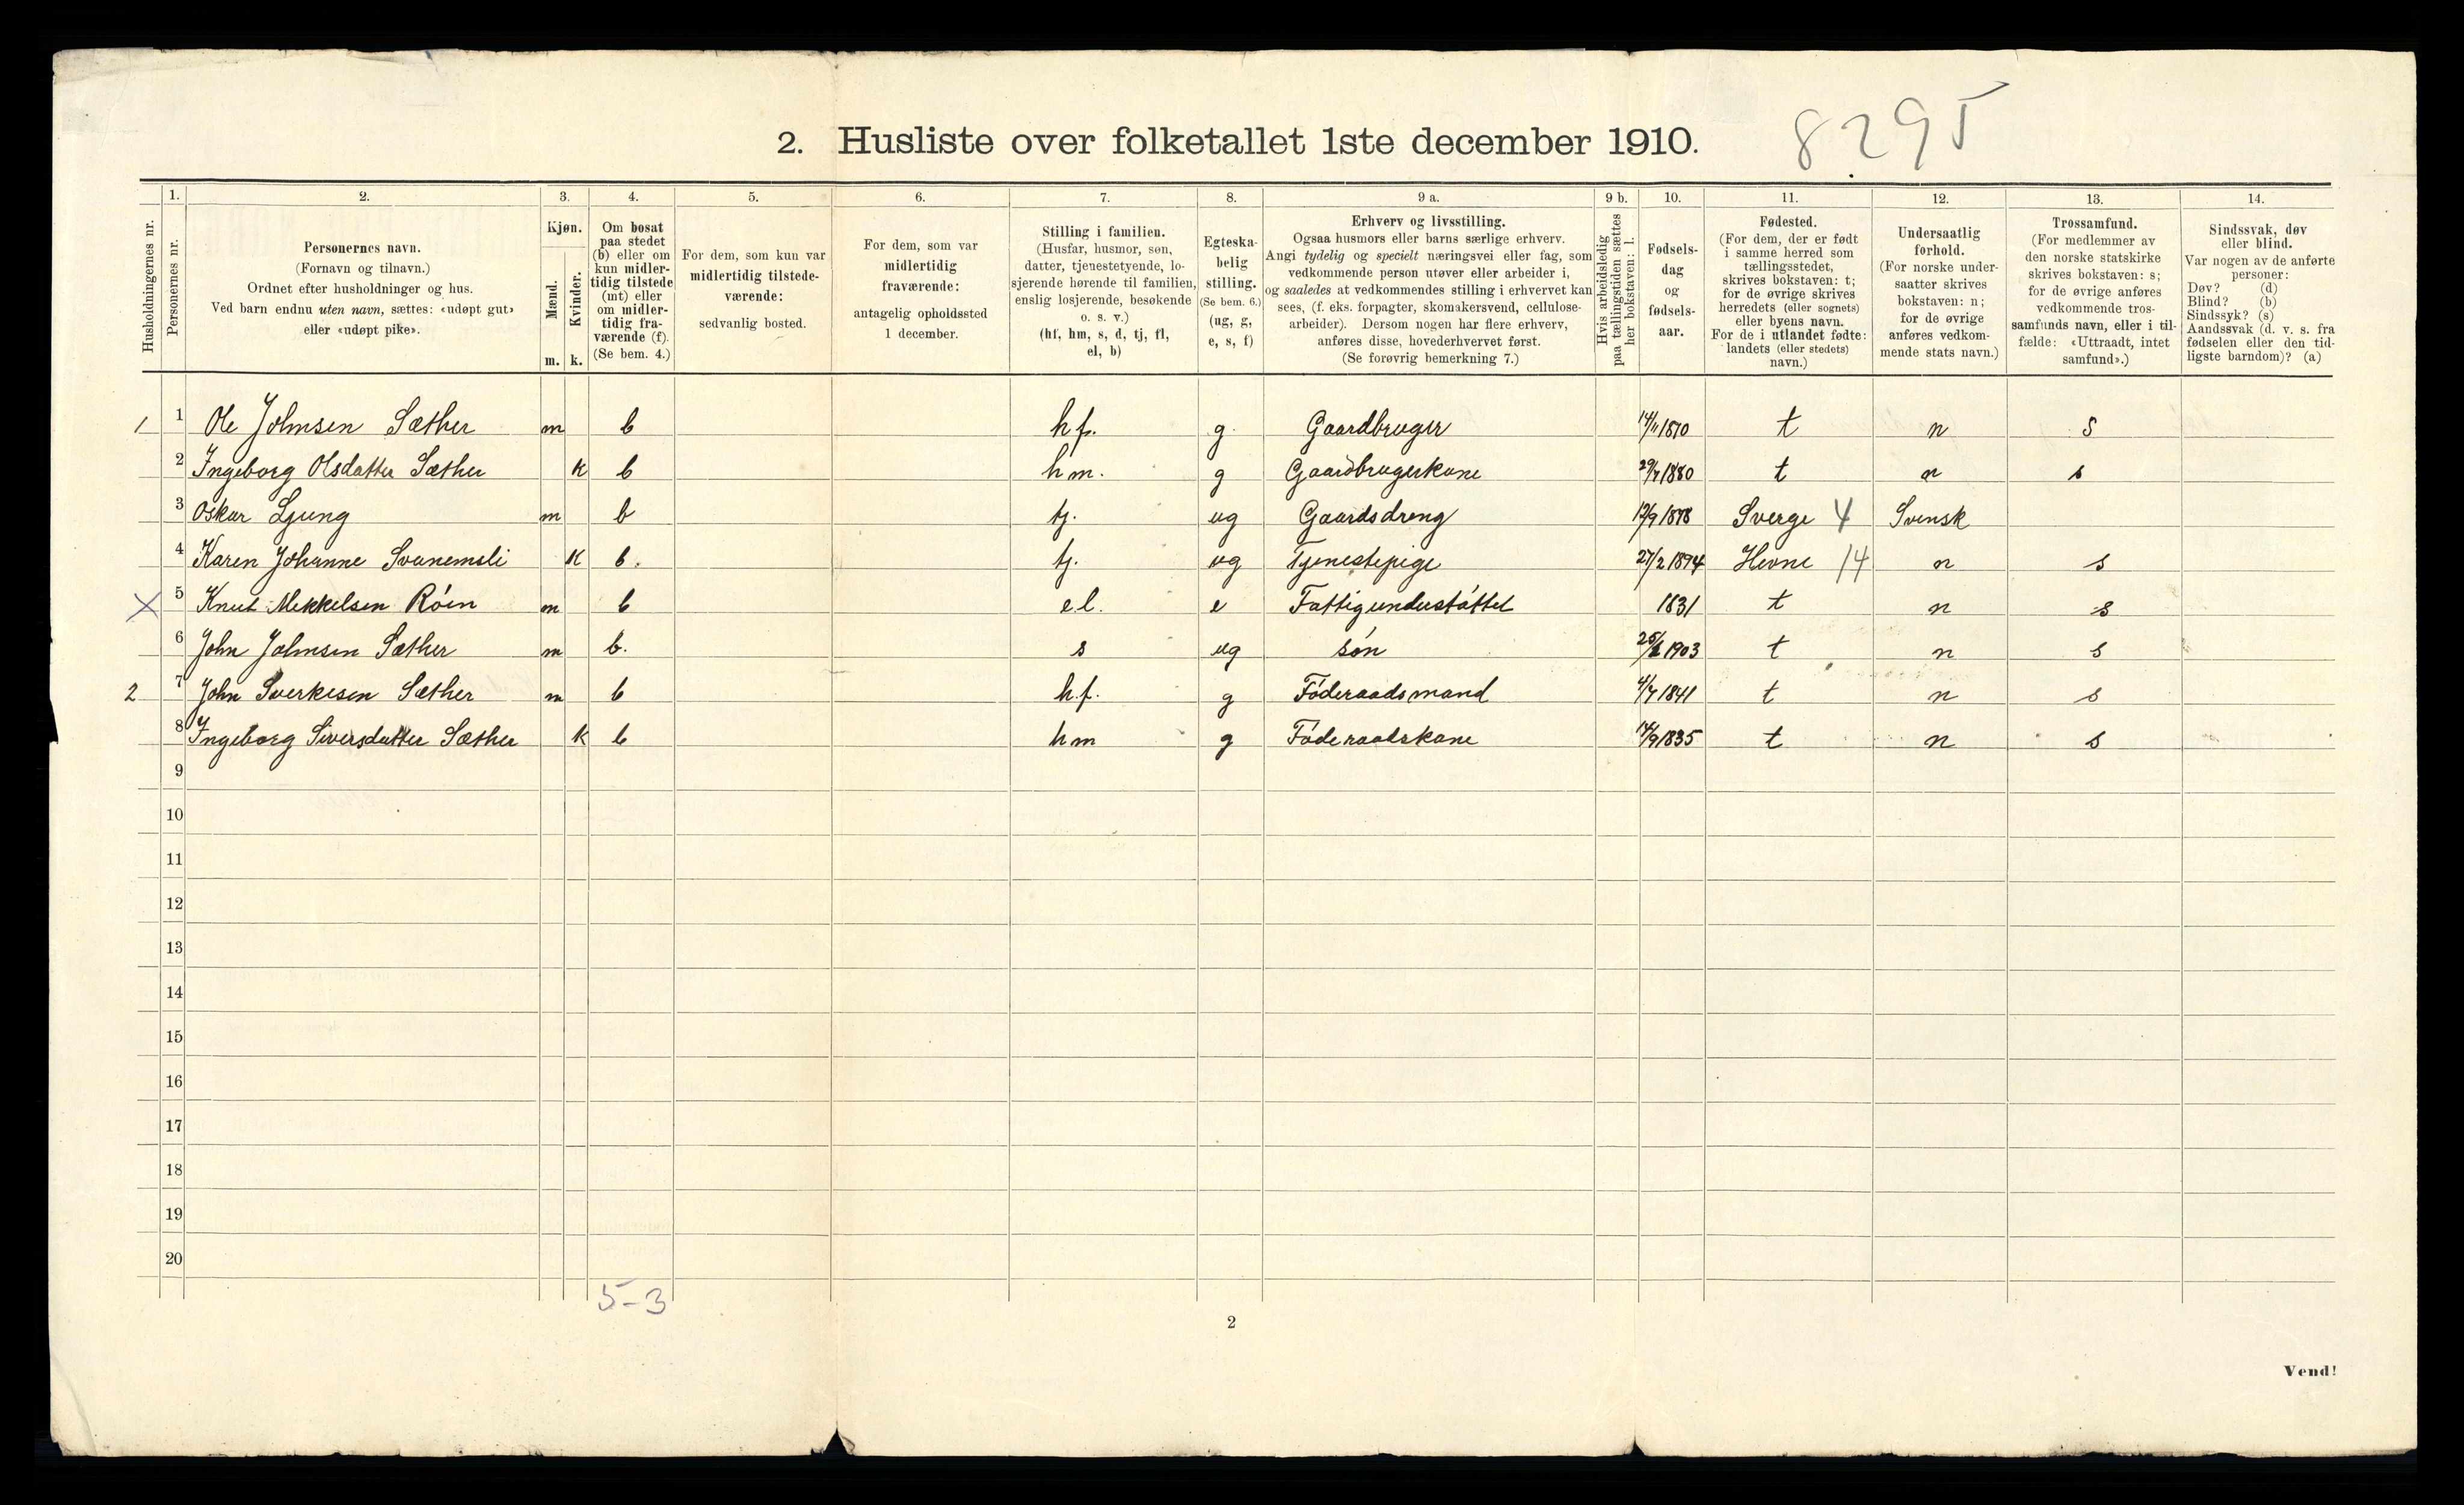 2. Husliste over folketallet 1ste december 1910. 8295
Husholdningernes nr.
1. Personernes nr.
2. Personernes navn. (Fornavn og tilnavn.) Ordnet efter husholdninger og hus. Ved barn endnu uten navn, sættes: «udøpt gut» eller «udøpt pike».
3. Kjøn. Mænd. m. Kvinder. k.
4. Om bosat paa stedet (b) eller om kun midlertidig tilstede (mt) eller om midlertidig fraværende (f). (Se bem. 4.)
5. For dem, som kun var midlertidig tilstedeværende: sedvanlig bosted.
6. For dem, som var midlertidig fraværende: antagelig opholdssted 1 december.
7. Stilling i familien. (Husfar, husmor, søn, datter, tjenestetyende, losjerende hørende til familien, enslig losjerende, besøkende o. s. v.) (hf, hm, s, d, tj, fl, el, b)
8. Egteskabelig stilling. (Se bem. 6.) (ug, g, e, s, f)
9 a. Erhverv og livsstilling. Ogsaa husmors eller barns særlige erhverv. Angi tydelig og specielt næringsvei eller fag, som vedkommende person utøver eller arbeider i, og saaledes at vedkommendes stilling i erhvervet kan sees, (f. eks. forpagter, skomakersvend, cellulosearbeider). Dersom nogen har flere erhverv, anføres disse, hovederhvervet først. (Se forøvrig bemerkning 7.)
9 b. Hvis arbeidsledig paa tællingstiden sættes her bokstaven: l.
10. Fødselsdag og fødselsaar.
11. Fødested. (For dem, der er født i samme herred som tællingsstedet, skrives bokstaven: t; for de øvrige skrives herredets (eller sognets) eller byens navn. For de i utlandet fødte: landets (eller stedets) navn.)
12. Undersaatlig forhold. (For norske undersaatter skrives bokstaven: n; for de øvrige anføres vedkommende stats navn.)
13. Trossamfund. (For medlemmer av den norske statskirke skrives bokstaven: s; for de øvrige anføres vedkommende trossamfunds navn, eller i tilfælde: «Uttraadt, intet samfund».)
14. Sindssvak, døv eller blind. Var nogen av de anførte personer: Døv? (d) Blind? (b) Sindssyk? (s) Aandssvak (d. v. s. fra fødselen eller den tidligste barndom)? (a)
1 1 Ole Johnsen Sæther m b hf. g. Gaardbruger 14/11 1870 t n s
2 Ingeborg Olsdatter Sæther k b hm. g Gaardbrugerkone 29/7 1880 t n s
3 Oskar Ljung m b tj. ug Gaardsdreng 12/9 1878 Sverge 4 Svensk
4 Karen Johanne Svanemsli k b. tj. ug Tjenestepige 27/2 1894 Hevne 14 n s
X 5 Knut Mekkelsen Röen m b el. e Fattigunderstöttet 1831 t n s
6 John Johnsen Sæther m b. s ug sön 1903 t n s
2 7 John Sverkesen Sæther m b h.f. g Föderaadsmand 4/7 1841 t n s
8 Ingeborg Siversdatter Sæther k b hm g Föderaadskone 14/9 1835 t n s
9
10
11
12
13
14
15
16
17
18
19
20
5-3
2
Vend!